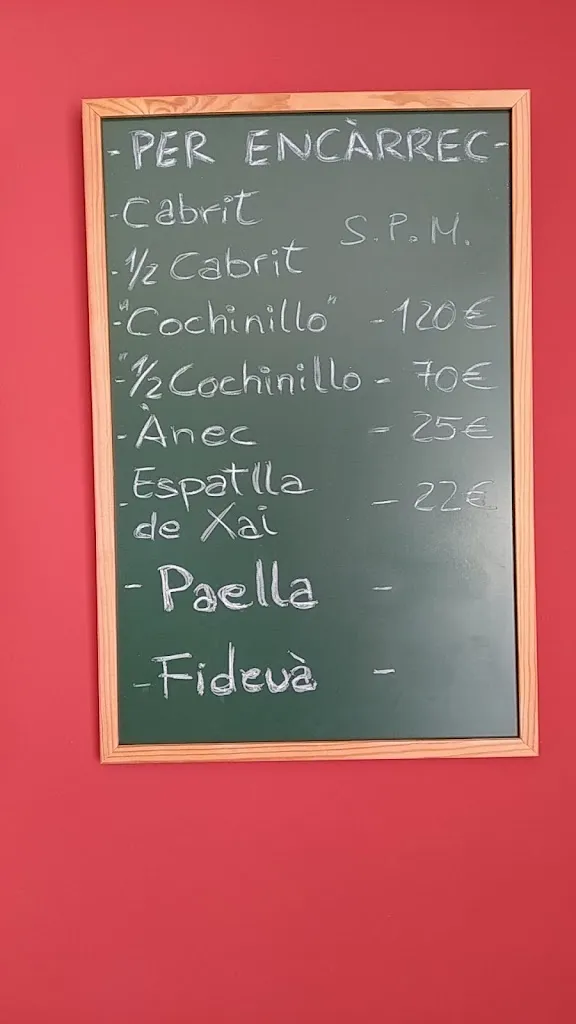 - PER ENCÀRREC -
- Cabrit
S.P.M.
- 1/2 Cabrit
- "Cochinillo" - 120€
- "1/2 Cochinillo - 70€
- Ànec - 25€
- Espatlla - 22€
de Xai
- Paella -
- Fideuà -